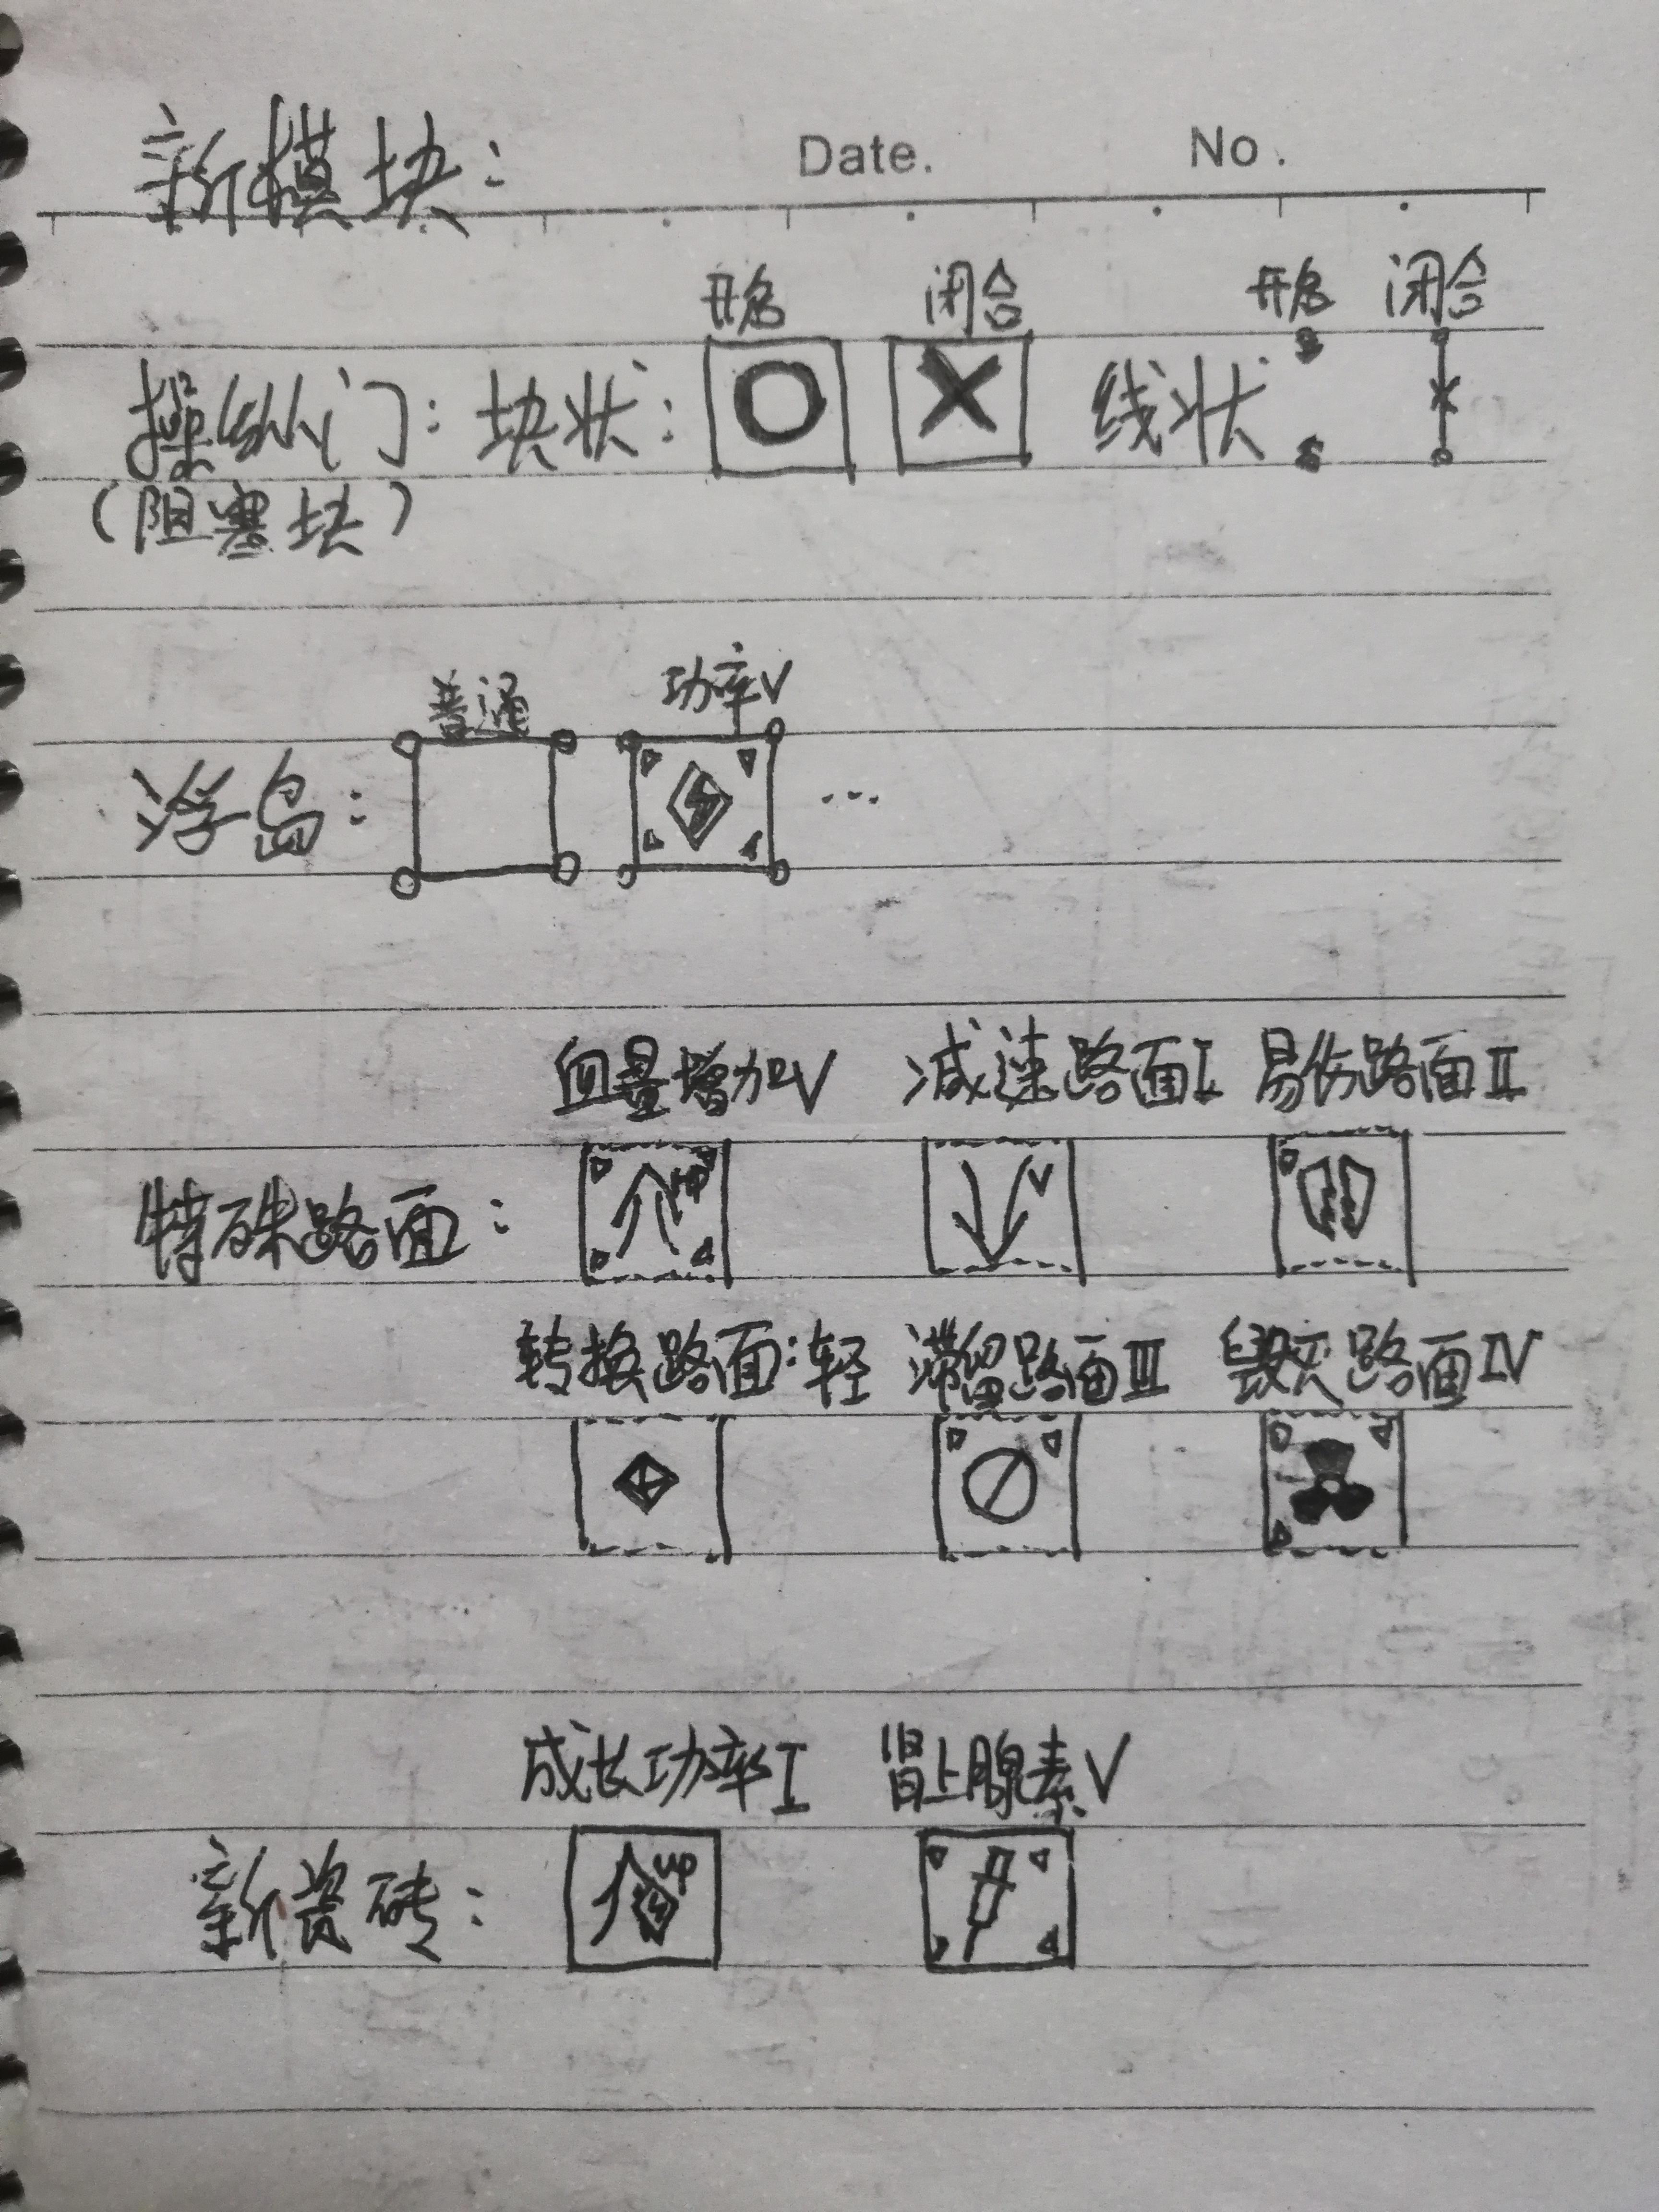 新模块： Date. No.
开启 闭合 开启 闭合
操纵门：块状： 线状：
（阻塞块）
普通 功率V
浮岛： ...
血量增加V 减速路面I 易伤路面II
特殊路面： HP V
转换路面：轻 滞留路面III 毁灭路面IV
成长功率I 肾上腺素V
新瓷砖： UP